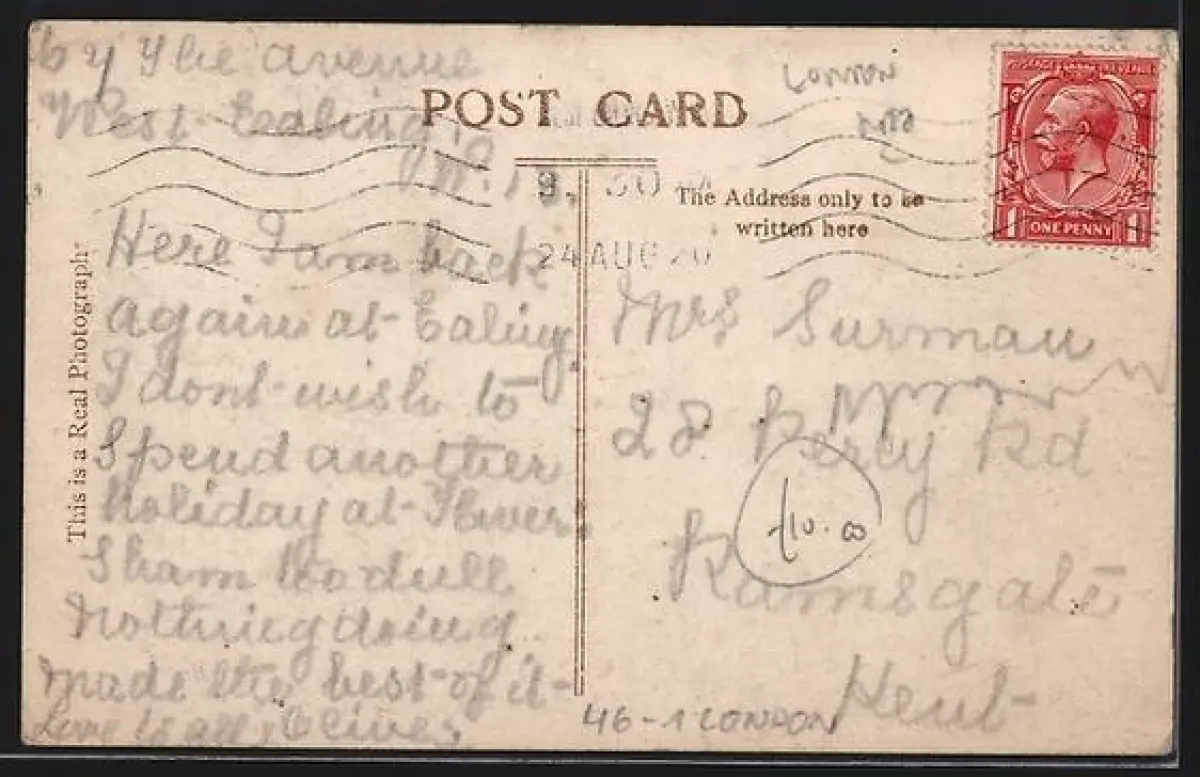 The Avenue
West Ealing
W.13.
Here I am back
again at Ealing
I dont wish to
Spend another
holiday at
sham too dull
Nothing doing
made the best of it
Love to all Olive
This is a Real Photograph
POST CARD
The Address only to be
written here
30
24 AUG 20
LONDON
POSTAGE REVENUE
1 ONE PENNY 1
Mrs Surman
28 Percy Rd
Ramsgate
Kent
£10.00
46-1 LONDON